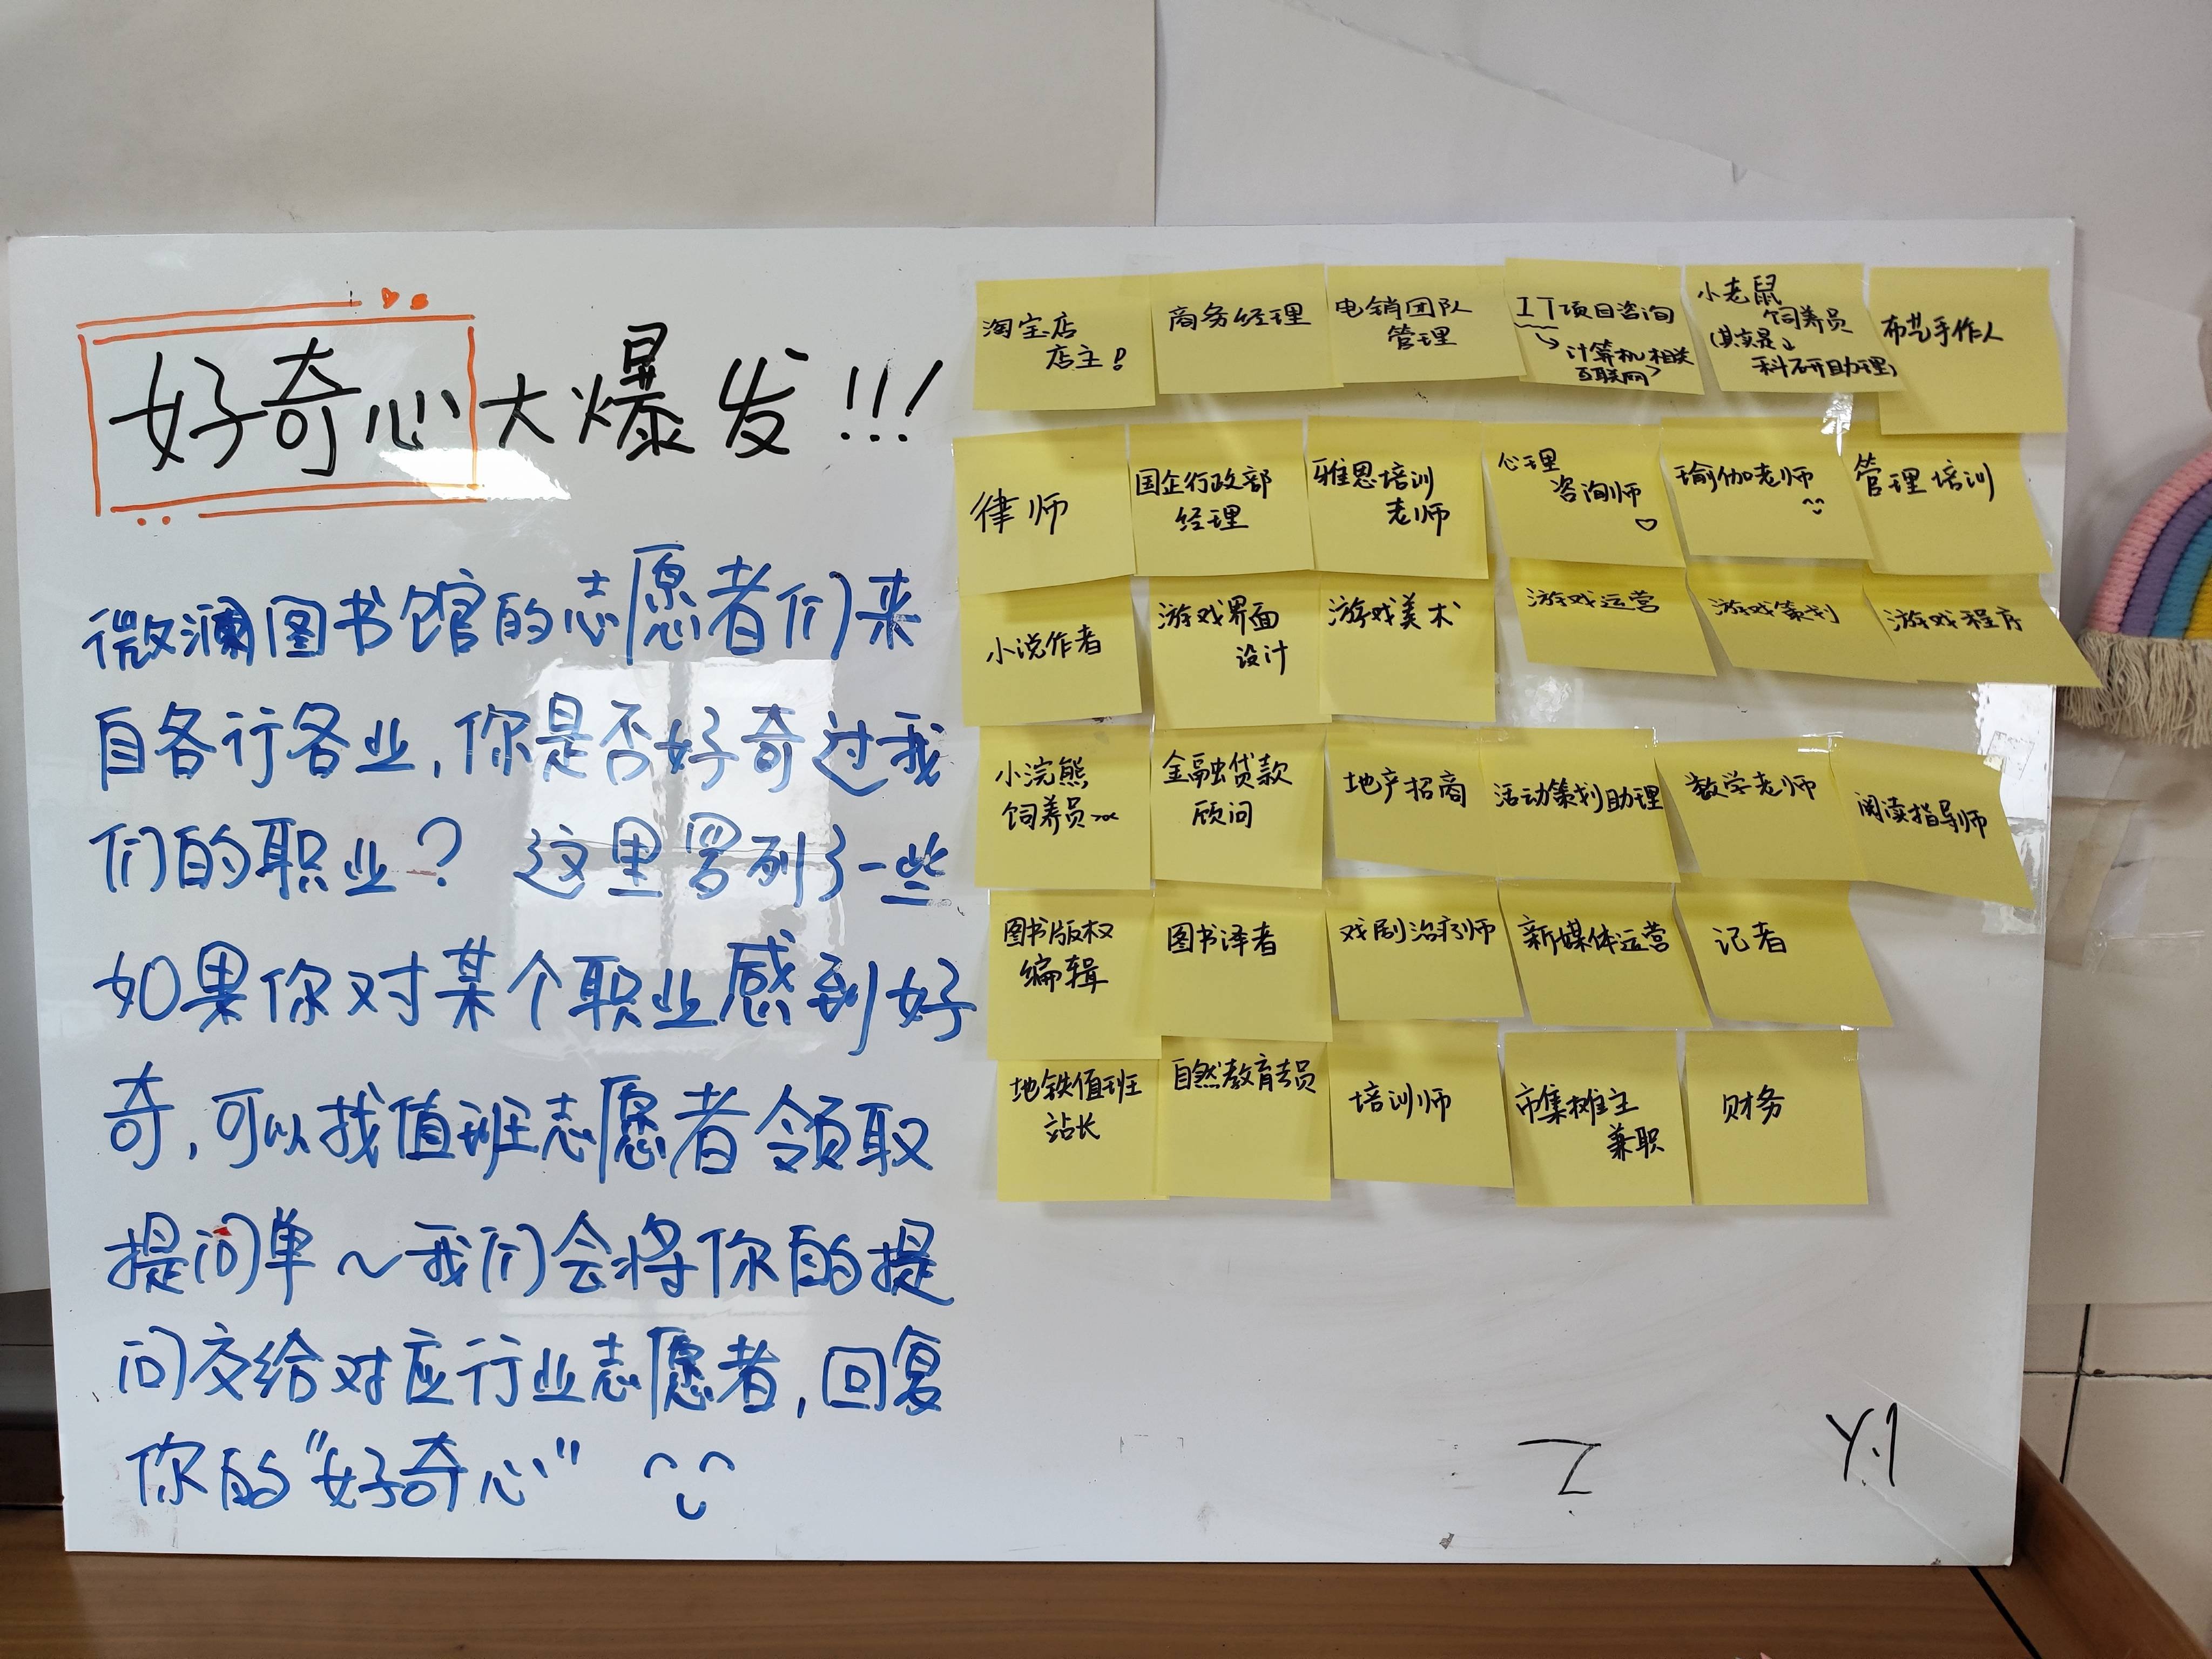 好奇心大爆发!!!
微澜图书馆的志愿者们来
自各行各业,你是否好奇过我
们的职业? 这里罗列了一些
如果你对某个职业感到好
奇,可以找值班志愿者领取
提问单~我们会将你的提
问交给对应行业志愿者,回复
你的"好奇心"
淘宝店
店主!
商务经理
电销团队
管理
IT项目咨询
计算机相关
互联网
小老鼠
饲养员
(其实是
科研助理)
布艺手作人
律师
国企行政部
经理
雅思培训
老师
心理
咨询师
瑜伽老师
管理培训
小说作者
游戏界面
设计
游戏美术
游戏运营
游戏策划
游戏程序
小浣熊
饲养员
金融贷款
顾问
地产招商
活动策划助理
数学老师
阅读指导师
图书版权
编辑
图书译者
戏剧治疗师
新媒体运营
记者
地铁值班
站长
自然教育专员
培训师
市集摊主
兼职
财务